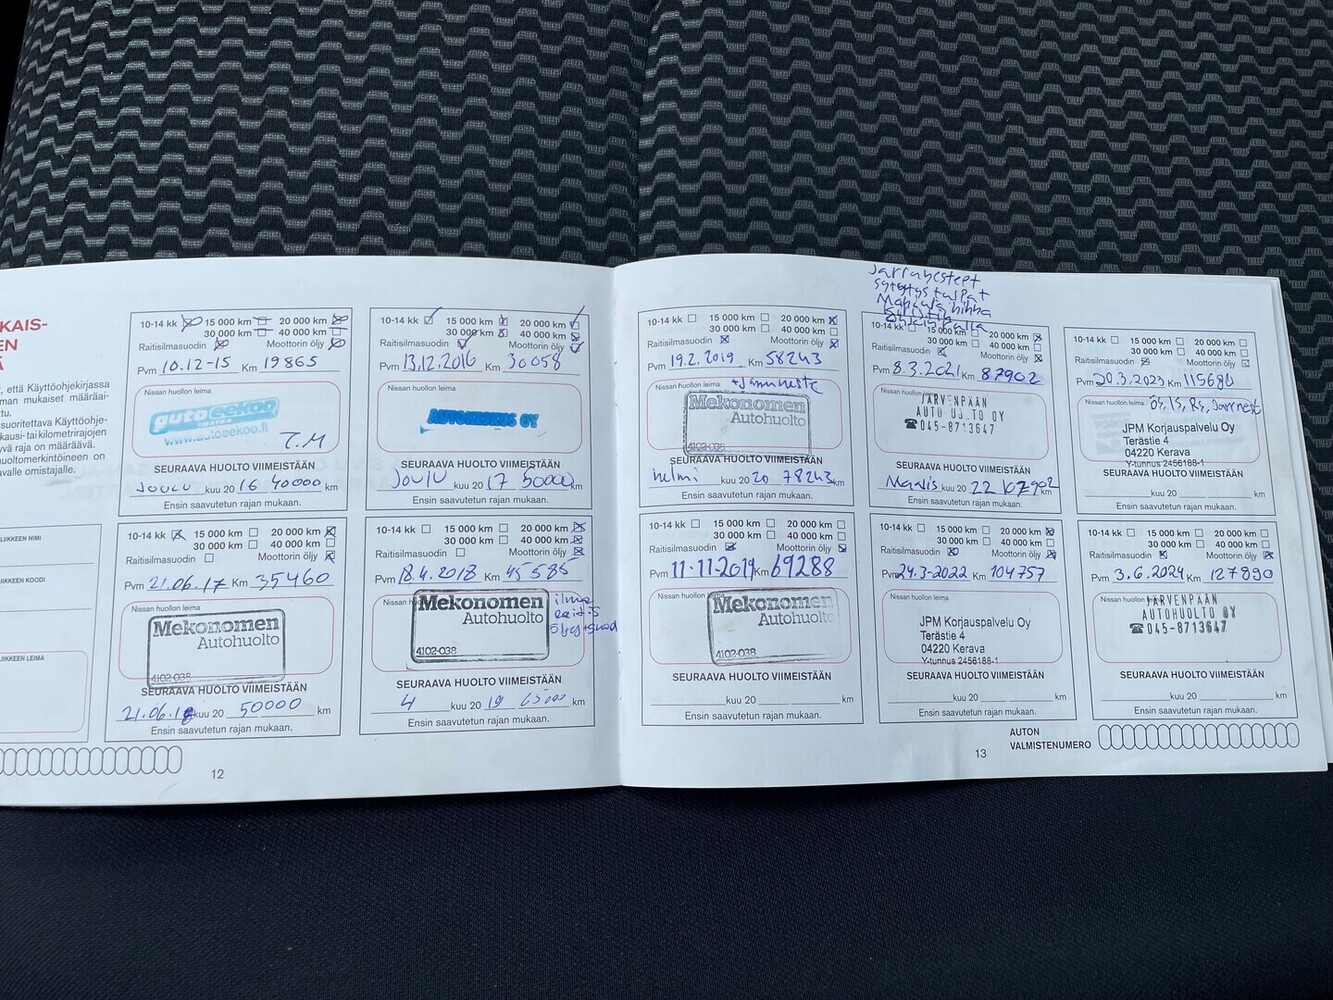 KAIS-
EN
Ä
, että Käyttöohjekirjassa
man mukaiset määräai-
tu.
suoritettava Käyttöohje-
kausi- tai kilometrirajojen
yvä raja on määräävä.
uoltomerkintöineen on
avalle omistajalle.
LIIKKEEN NIMI
LIIKKEEN KOODI
LIIKKEEN LEIMA
10-14 kk 15 000 km 20 000 km
30 000 km 40 000 km
Raitisilmasuodin Moottorin öljy
Pvm 10.12-15 Km 19865
Nissan huollon leima
autoeekoo
IMATRA
www.autoeekoo.fi
T.M
SEURAAVA HUOLTO VIIMEISTÄÄN
JOULU kuu 20 16 40000 km
Ensin saavutetun rajan mukaan.
10-14 kk 15 000 km 20 000 km
30 000 km 40 000 km
Raitisilmasuodin Moottorin öljy
Pvm 13.12.2016 Km 30058
Nissan huollon leima
AUTOKESKUS OY
SEURAAVA HUOLTO VIIMEISTÄÄN
JOULU kuu 20 17 50000 km
Ensin saavutetun rajan mukaan.
10-14 kk 15 000 km 20 000 km
30 000 km 40 000 km
Raitisilmasuodin Moottorin öljy
Pvm 21.06.17 Km 35460
Nissan huollon leima
Mekonomen
Autohuolto
4102-038
SEURAAVA HUOLTO VIIMEISTÄÄN
21.06.18 kuu 20 50000 km
Ensin saavutetun rajan mukaan.
10-14 kk 15 000 km 20 000 km
30 000 km 40 000 km
Raitisilmasuodin Moottorin öljy
Pvm 18.4.2018 Km 45585
Nissan h
Mekonomen
Autohuolto
4102-038
ilma
raitis
SEURAAVA HUOLTO VIIMEISTÄÄN
4 kuu 20 19 65000 km
Ensin saavutetun rajan mukaan.
12
10-14 kk 15 000 km 20 000 km
30 000 km 40 000 km
Raitisilmasuodin Moottorin öljy
Pvm 19.2.2019 Km 58243
Nissan huollon leima + Jarruneste
Mekonomen
Autohuolto
4102-038
SEURAAVA HUOLTO VIIMEISTÄÄN
helmi kuu 20 20 78243 km
Ensin saavutetun rajan mukaan.
Jarrunesteet
sytytystulpat
10-14 kk 15 000 km 20 000 km
30 000 km 40 000 km
Raitisilmasuodin Moottorin öljy
Pvm 8.3.2021 Km 87902
Nissan huollon leima
JÄRVENPÄÄN
AUTOHUOLTO OY
☎ 045-8713647
SEURAAVA HUOLTO VIIMEISTÄÄN
Maalis kuu 20 22 107902 km
Ensin saavutetun rajan mukaan.
10-14 kk 15 000 km 20 000 km
30 000 km 40 000 km
Raitisilmasuodin Moottorin öljy
Pvm 20.3.2023 Km 115680
Nissan huollon leima ÖS, IS, RS, Jarrunest
JPM Korjauspalvelu Oy
Terästie 4
04220 Kerava
Y-tunnus 2456188-1
SEURAAVA HUOLTO VIIMEISTÄÄN
kuu 20 km
Ensin saavutetun rajan mukaan.
10-14 kk 15 000 km 20 000 km
30 000 km 40 000 km
Raitisilmasuodin Moottorin öljy
Pvm 11.11.2019 Km 69288
Nissan huollon leima
Mekonomen
Autohuolto
4102-038
SEURAAVA HUOLTO VIIMEISTÄÄN
kuu 20 km
Ensin saavutetun rajan mukaan.
10-14 kk 15 000 km 20 000 km
30 000 km 40 000 km
Raitisilmasuodin Moottorin öljy
Pvm 24.3-2022 Km 104757
Nissan huollon leima
JPM Korjauspalvelu Oy
Terästie 4
04220 Kerava
Y-tunnus 2456188-1
SEURAAVA HUOLTO VIIMEISTÄÄN
kuu 20 km
Ensin saavutetun rajan mukaan.
10-14 kk 15 000 km 20 000 km
30 000 km 40 000 km
Raitisilmasuodin Moottorin öljy
Pvm 3.6.2024 Km 127890
Nissan huollon leima
JÄRVENPÄÄN
AUTOHUOLTO OY
☎ 045-8713647
SEURAAVA HUOLTO VIIMEISTÄÄN
kuu 20 km
Ensin saavutetun rajan mukaan.
13
AUTON
VALMISTENUMERO